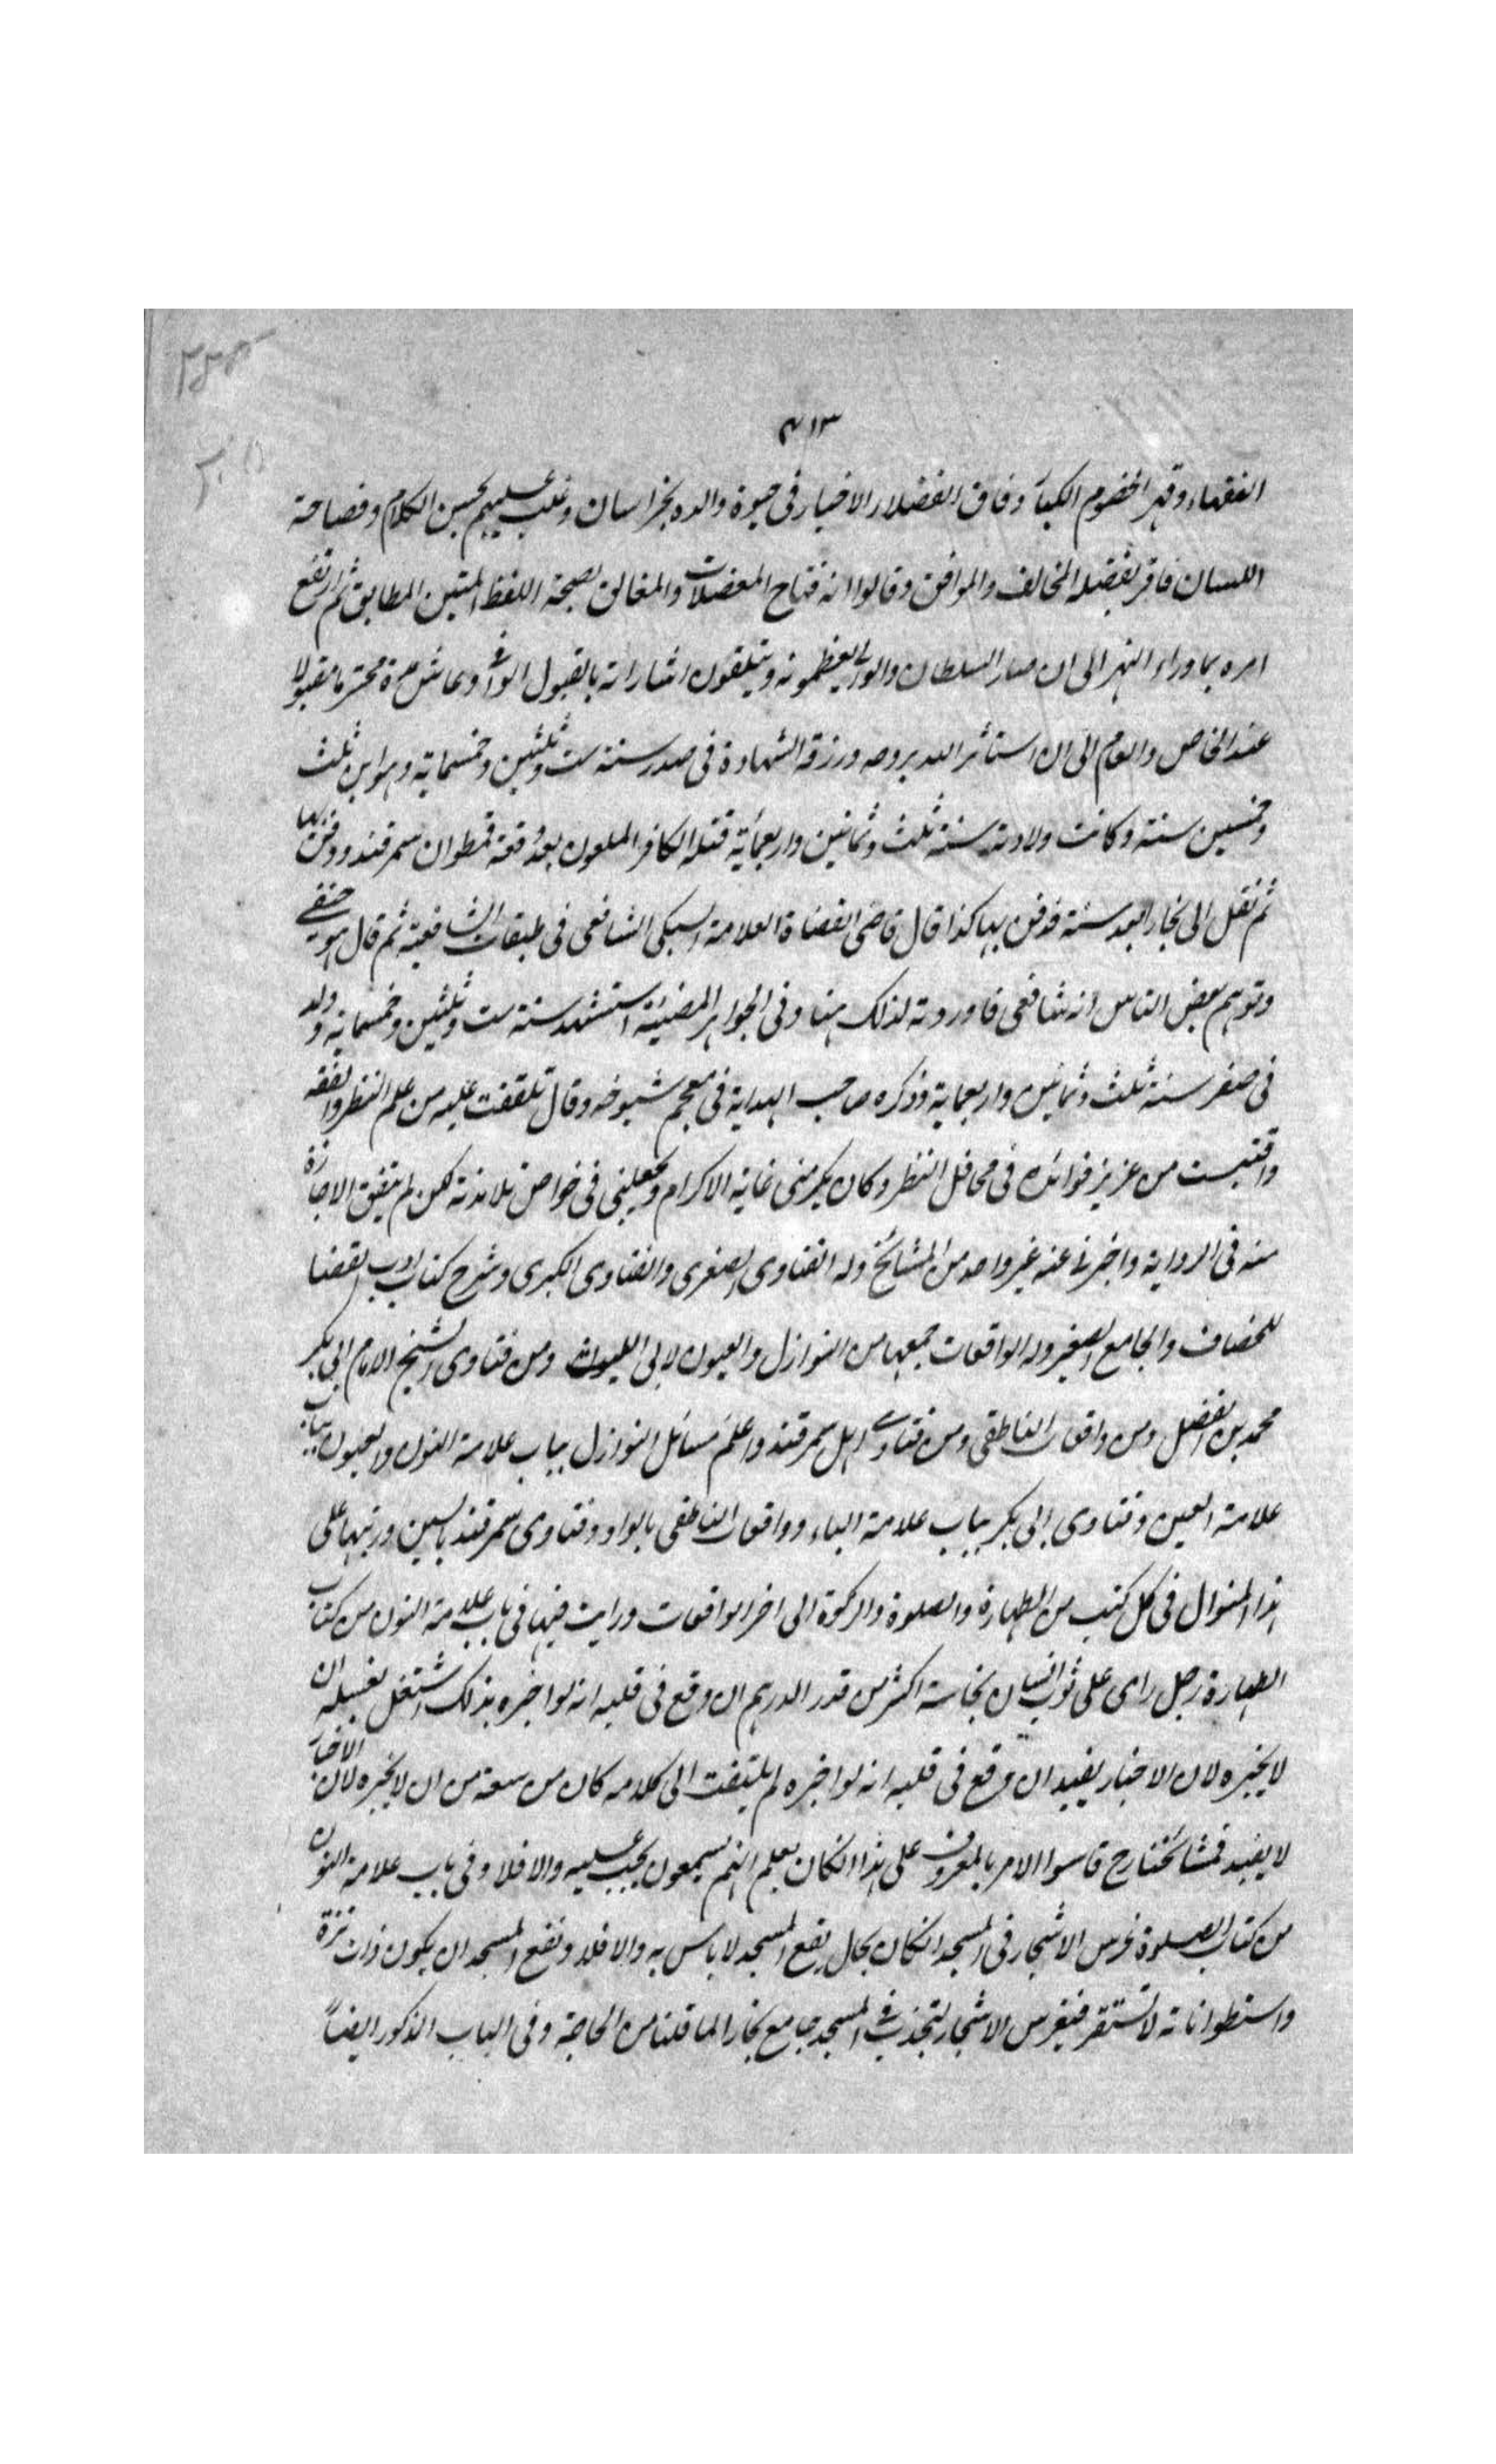 ٤١٣
الفقهاء وقهر الخضوم الكبآ وفاق الفضلاء الاخيار فى حيوة والده بخراسان وغلب عليهم بحسن الكلام وفصاحة
اللسان فاقر بفضله المخالف والموافق وقالوا انه فتاح المعضلات والمغالق بصحة اللفظ المتين المطابق ثم ارتفع
امره بماوراء النهر الى ان صار السلطان والوالى يعظمونه ويتلقون اشاراته بالقبول الوافى وعاش مدة محترما مقبولا
عند الخاص والعام الى ان استأثر الله بروحه ورزقه الشهادة فى صدر سنة ست وثلثين وخمسماية وهو ابن ثلث
وخمسين سنة وكانت ولادته سنة ثلث وثمانين واربعمائة قتله الكافر الملعون بعد وقعة قطوان سمرقند ودفن بها
ثم نقل الى بخارا بعد سنة فدفن بها كذا قال قاضى القضاة العلامة السبكى الشافعى فى طبقات الشافعية ثم قال هو حنفى
وتوهم بعض الناس انه شافعى فاوردته لذلك هنا وفى الجواهر المضيئة استشهد سنة ست وثلثين وخمسماية وولد
فى صفر سنة ثلث وثمانين واربعماية وذكره صاحب الهداية فى معجم شيوخه وقال تلقفت عليه من علم النظر والفقه
واقتبست من عزيز فوائده فى محافل النظر وكان يكرمنى غاية الاكرام ويجعلنى فى خواص تلامذته لكن لم يتفق الاجازة
منه فى الرواية واخبرنى عنه غير واحد من المشائخ وله الفتاوى الصغرى والفتاوى الكبرى وشرح كتاب ادب القضا
للخصاف والجامع الصغير وله الواقعات جمعها من النوازل والعيون لابى الليث ومن فتاوى الشيخ الامام ابى بكر
محمد بن الفضل ومن واقعات الناطقى ومن فتاوى اهل سمرقند واعلم مسائل النوازل بباب علامة النون والعيون بباب
علامة العين وفتاوى ابى بكر بباب علامة الباء وواقعات الناطقى بالواو وفتاوى سمرقند بالسين ورتبها على
هذا المنوال فى كل كتب من الطهارة والصلوة والزكوة الى اخر الواقعات ورايت فيها فى باب علامة النون من كتاب
الطهارة رجل راى على ثوب انسان نجاسة اكثر من قدر الدرهم ان وقع فى قلبه انه لو اخبره بذلك اشتغل بغسله ان
لا يخبره لان الاخبار يفيد ان وقع فى قلبه انه لو اخبره لم يلتفت الى كلامه كان من سعة من ان لا يخبره لان الاخبار
لا يفيد فمشائخنا رح قاسوا الامر بالمعروف على هذا انكان يعلم انهم يسمعون يجب عليه والا فلا وفى باب علامة النون
من كتاب الصلوة غرس الاشجار فى المسجد انكان بحال ينفع المسجد لا باس به والا فلا ونفع المسجد ان يكون ذات نزة
واسطواناته لا تستقر فيغرس الاشجار لتجذب فى المسجد جامع بخارا لما قلنا من الحاجة وفى الباب المذكور ايضاً